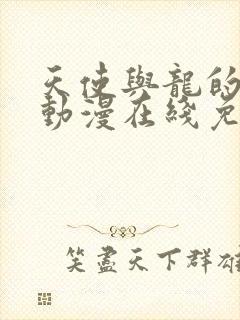 天使與龍的
動漫在綫免
笑盡天下群雄